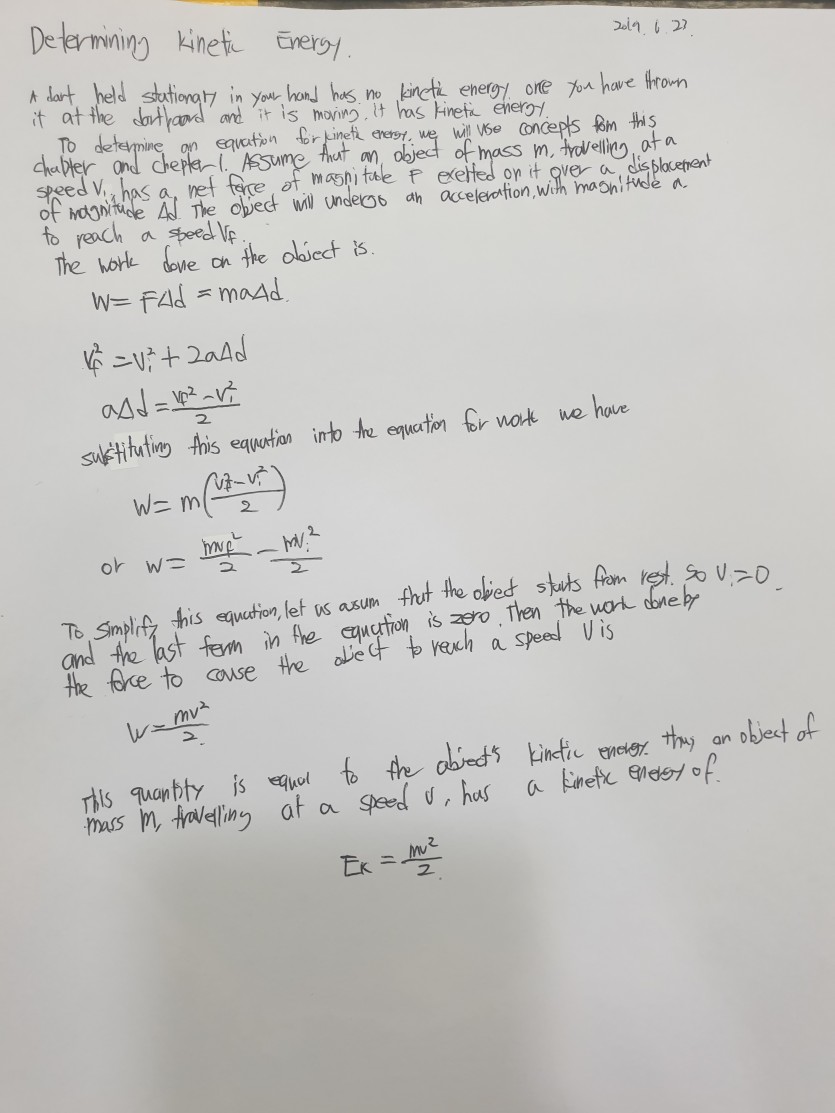 Determining kinetic Energy.
2019. 6. 27.
A dart held stationary in your hand has no kinetic energy, one you have thrown
it at the dartboard and it is moving, it has kinetic energy.
To determine an equation for kinetic energy, we will use concepts from this
chapter and chepter 1. Assume that an object of mass m, travelling at a
speed Vi, has a net force of magnitude F exerted on it over a displacement
of magnitude Δd. The object will undergo an acceleration, with magnitude a.
to reach a speed Vf.
The work done on the object is.
W= FΔd = maΔd.
Vf² = Vi² + 2aΔd
aΔd = (Vf² - Vi²)/2
substituting this equation into the equation for work we have
W= m((Vf² - Vi²)/2)
or W= mvf²/2 - mVi²/2
To simplify this equation, let us asum that the object starts from rest. So Vi=0
and the last term in the equation is zero. Then the work done by
the force to couse the object to reach a speed V is
W = mv²/2.
This quantity is equal to the object's kinetic energy. thus an object of
mass m, travelling at a speed v, has a kinetic energy of.
EK = mv²/2.